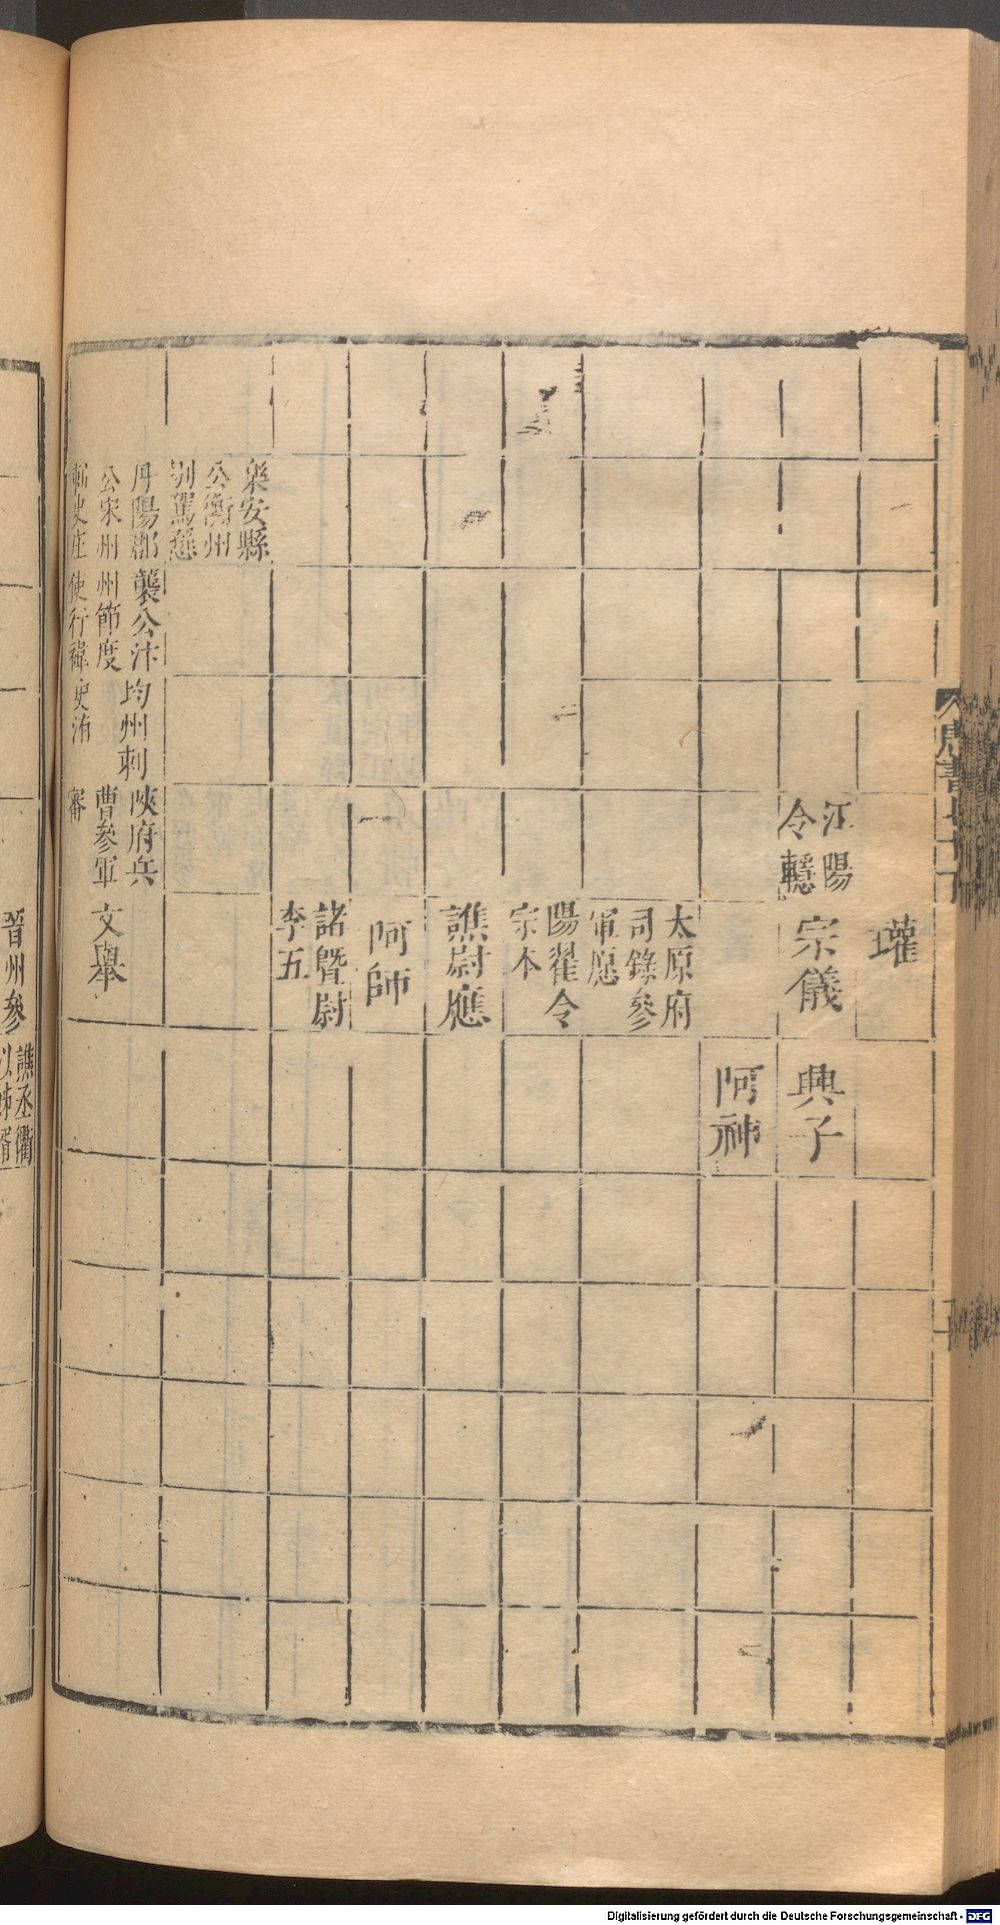 瓘
江陽
令轙
宗儀
典子
阿神
太原府
司錄參
軍應
陽翟令
宗本
譙尉應
阿師
諸暨尉
李五
樂安縣
公衡州
別駕遜
丹陽郡
公宋州
刺史庄
襲公汴
州節度
使行褘
均州刺
史洧
陝府兵
曹參軍
審
文舉
晉州參
譙丞衢
Digitalisierung gefördert durch die Deutsche Forschungsgemeinschaft - DFG